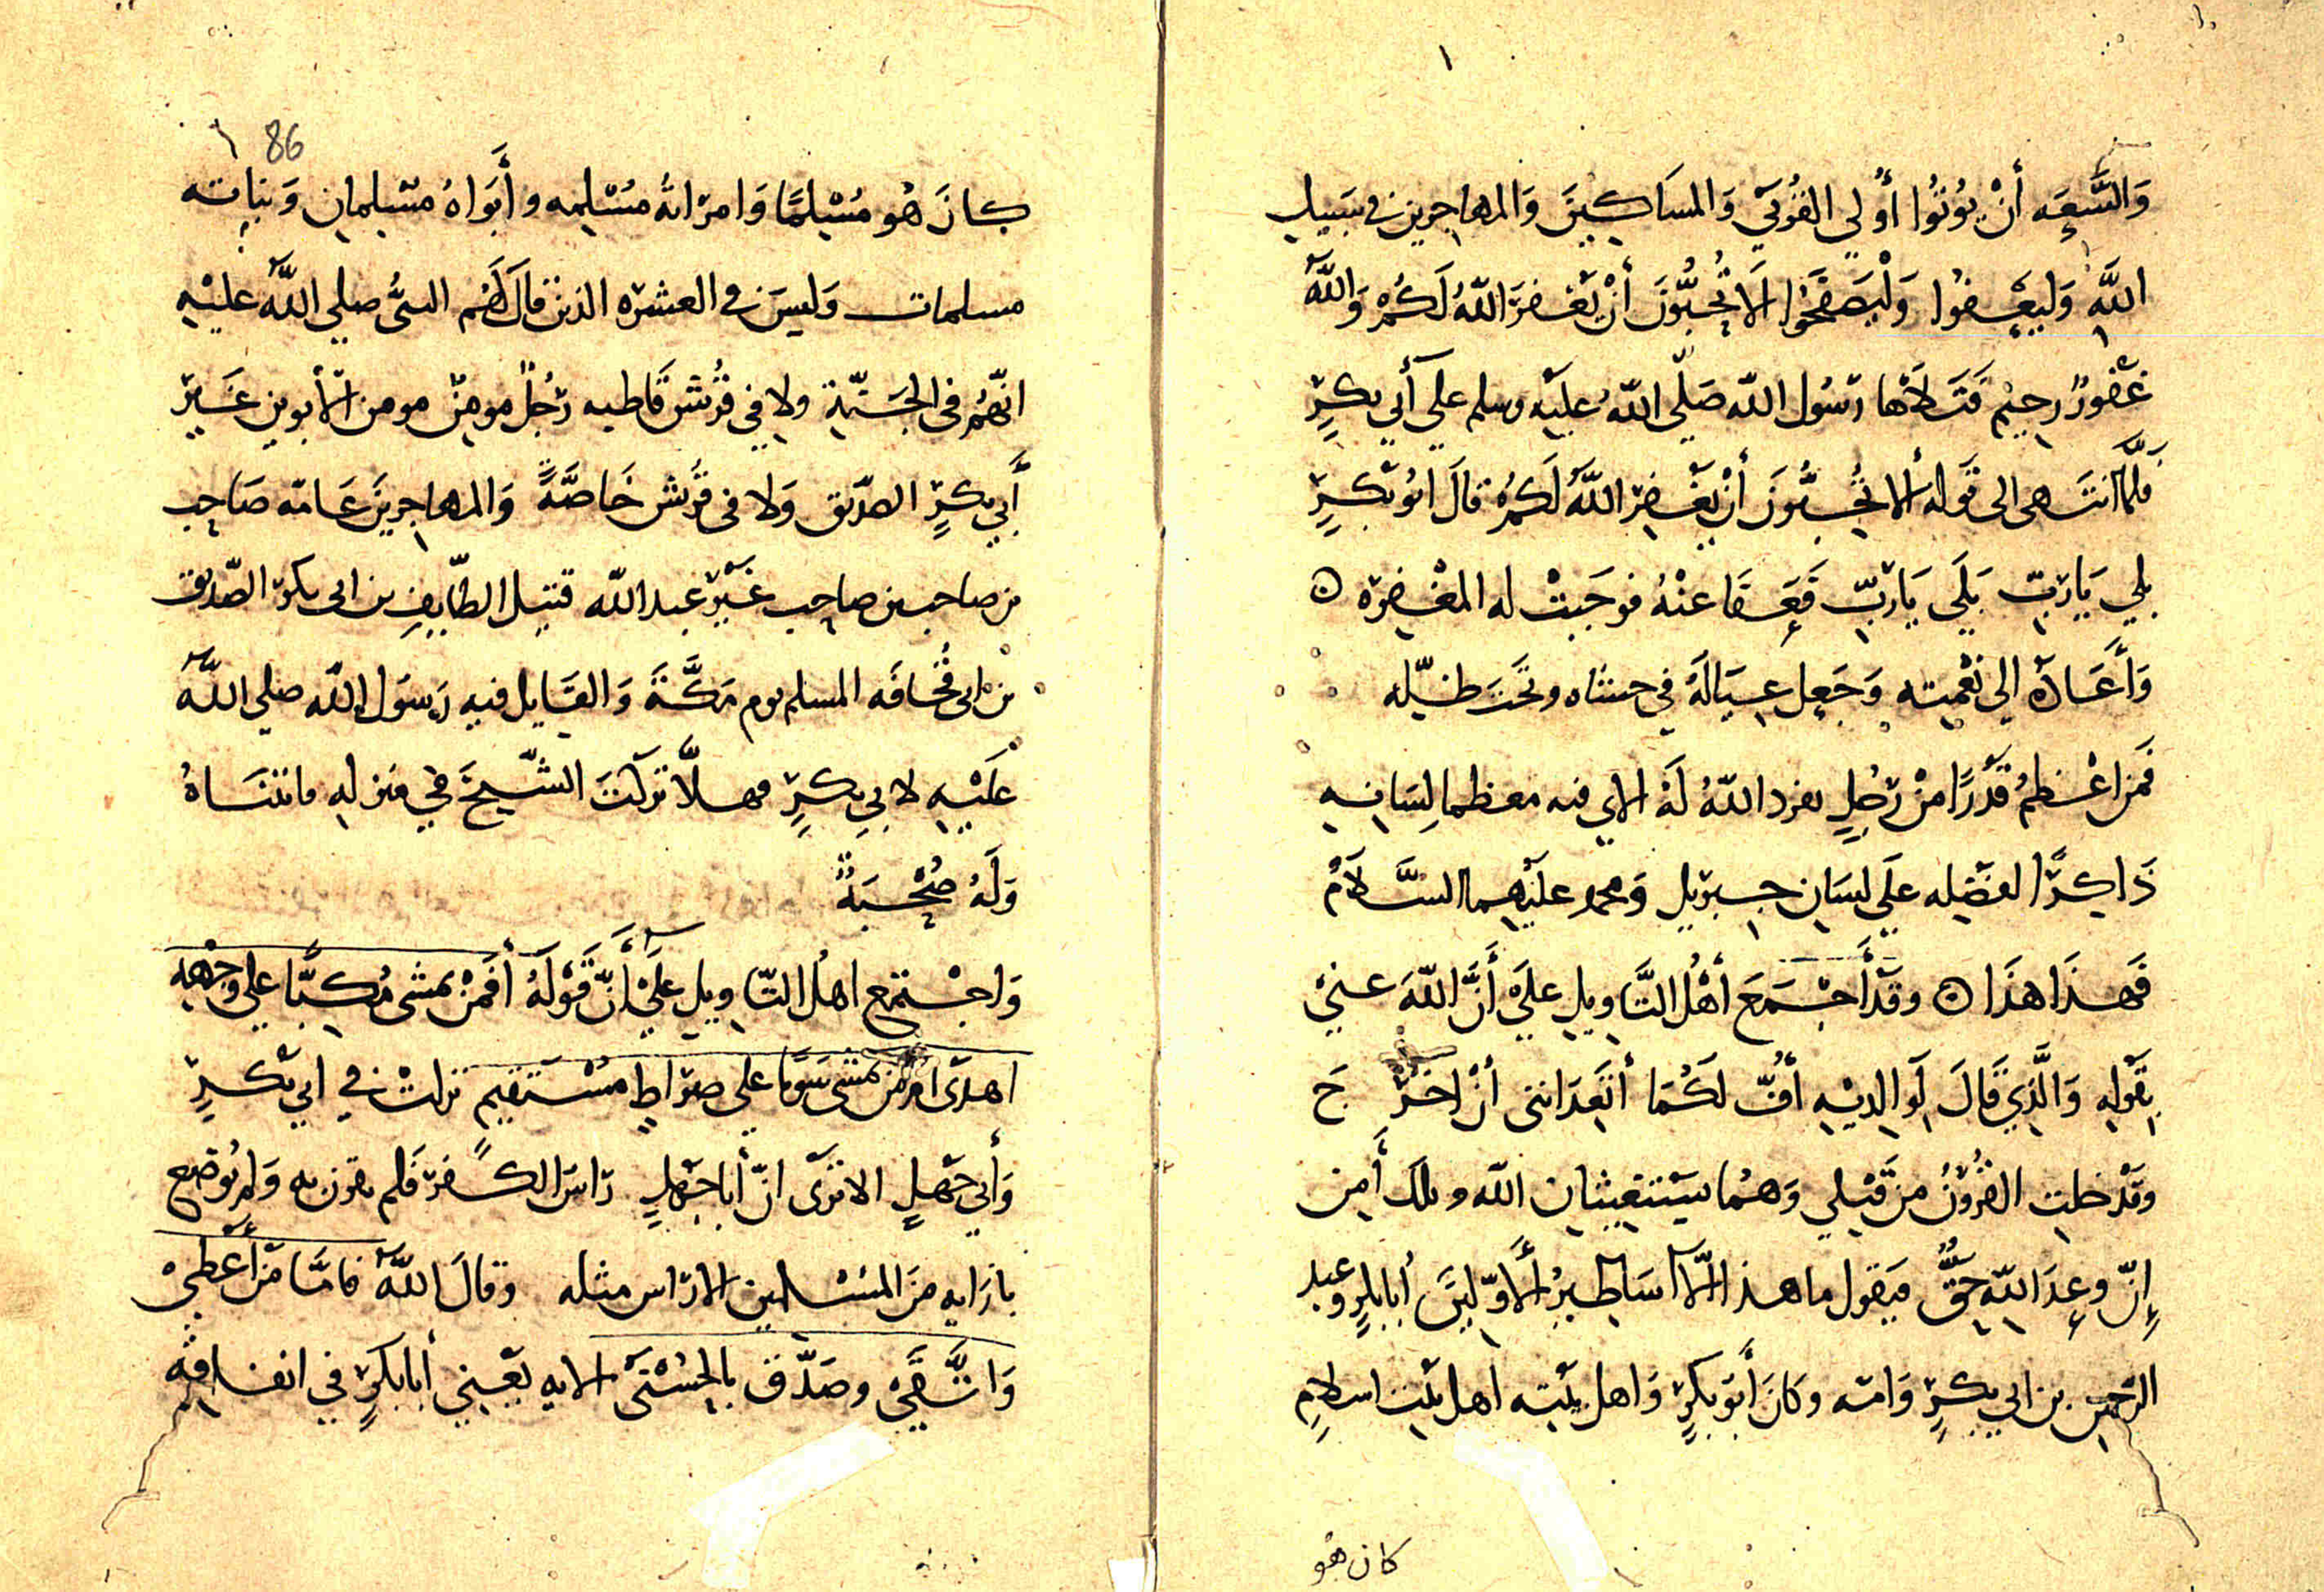 وَالسَّعَه أَنْ يُوتُوا أُولي القُربَي وَالمسَاكِينَ وَالمهاجرين في سَبيل
اللَّهِ وَليَعفُوا وَلْيَصفَحُوا الَا تُحِبُّونَ أَنْ يَغفرَ اللَّهُ لَكُمْ وَاللَّهُ
غَفُورٌ رحِيم فَتَلَاهَا رسُول الله صَلّى اللهُ عليه وسلم علي أَبي بكرٍ
فلمّا انتَهى الى قَوله ألا تُحبُّونَ أنْ يَغْفِر اللَّهُ لَكمُ قالَ ابُو بكرٍ
بلي يَا ربّ بَلَي يَا ربّ فَعَفَا عنْهُ فوجَبتْ له المغْفِرة ں
وَأَعَادَه الي نعْمته وَجَعل عيَالَهُ في حشاه وتَحت ظلّه
فمَن اعْظمُ قَدْرًا منْ رَجُلٍ يفرد اللهُ لَهُ الاي فيه معظما لِسَانه
ذَاكِرًا لفضَيله علَي لسَان جبريل وَمحمد عليْهما السَّلَامْ
فَهذَا هذَا ں وقَد أَجْمَعَ أهْلُ التَّاويل علَي أَنَّ اللّهَ عنيْ
بِقَوْلهِ وَالَّذِي قَالَ لوَالِديْهِ أُفّ لكُمَا أتَعِدَانني أنْ اخرَ جَ
وقَدْ خلت القُرُونُ منْ قَبْلي وَهمُا يسْتَغيثان الله ويلك أَمِن
إِنّ وعدَ اللهِ حَقٌّ فيَقول ما هذا الَّا أسَاطيرُ الأوّلِينَ أبا بكرٍ وعبد
الرَّحمن بن ابي بكرٍ وَامّه وكانَ أبُو بكرٍ وَاهل بيْته اهل بيْت اسلامٍ
كان هُو
86
كانَ هُو مُسْلِمًا وَامرَاتهُ مُسْلِمه وأَبَوَاهُ مُسْلِمان وَبناته
مسلمات وَليسَ في العشره الذين قال لَهُم النبيُّ صلي اللَّه عليْهِ
انّهُم في الجَنّةِ ولا في قُرَيش قَاطبه رَجُلٌ مومِنٌ مومن الأبوين غَيرَ
أَبي بكرٍ الصدّيق وَلا في قُرَيش خَاصَّةً وَالمهاجرينَ عَامّه صَاحب
بن صاحب بن صاحب غَيْرَ عبد اللّه قتيل الطّايِفِ بن ابي بكر الصّديق
بن ابي قُحَافَه المسلم يوم مَكَّةَ وَالقَايل فيه رَسوَل اللّه صلي اللَّه
عَلَيْهِ لابي بكرٍ فهلّا تركتَ الشّيخَ في منزله ما ننسَاهُ
وَلَهُ صُحْبَةٌ
وَاجْتمَع اهل التّاويل علَيْ أَنّ قَوْلَهُ أفَمَنْ يمشى مُكبًّا علي وجْهه
اهدَى امَّن يَمشى سَويًّا علي صرَاطٍ مُسْتَقيم نزلتْ في ابي بكرٍ
وَأَبي جَهْلٍ الا ترَى انّ أبا جَهْلٍ رَاسُ الكُفر فلم يقرن به وَلم يُوضع
بازَايه منَ المسْلمين الا رَاس مثله وقالَ اللَّهُ فامَّا مَنْ أَعْطيْ
وَاتَّقَيْ وصَدّق بالحُسْنَى الايه يَعْني أبا بكرٍ في انفاقِه